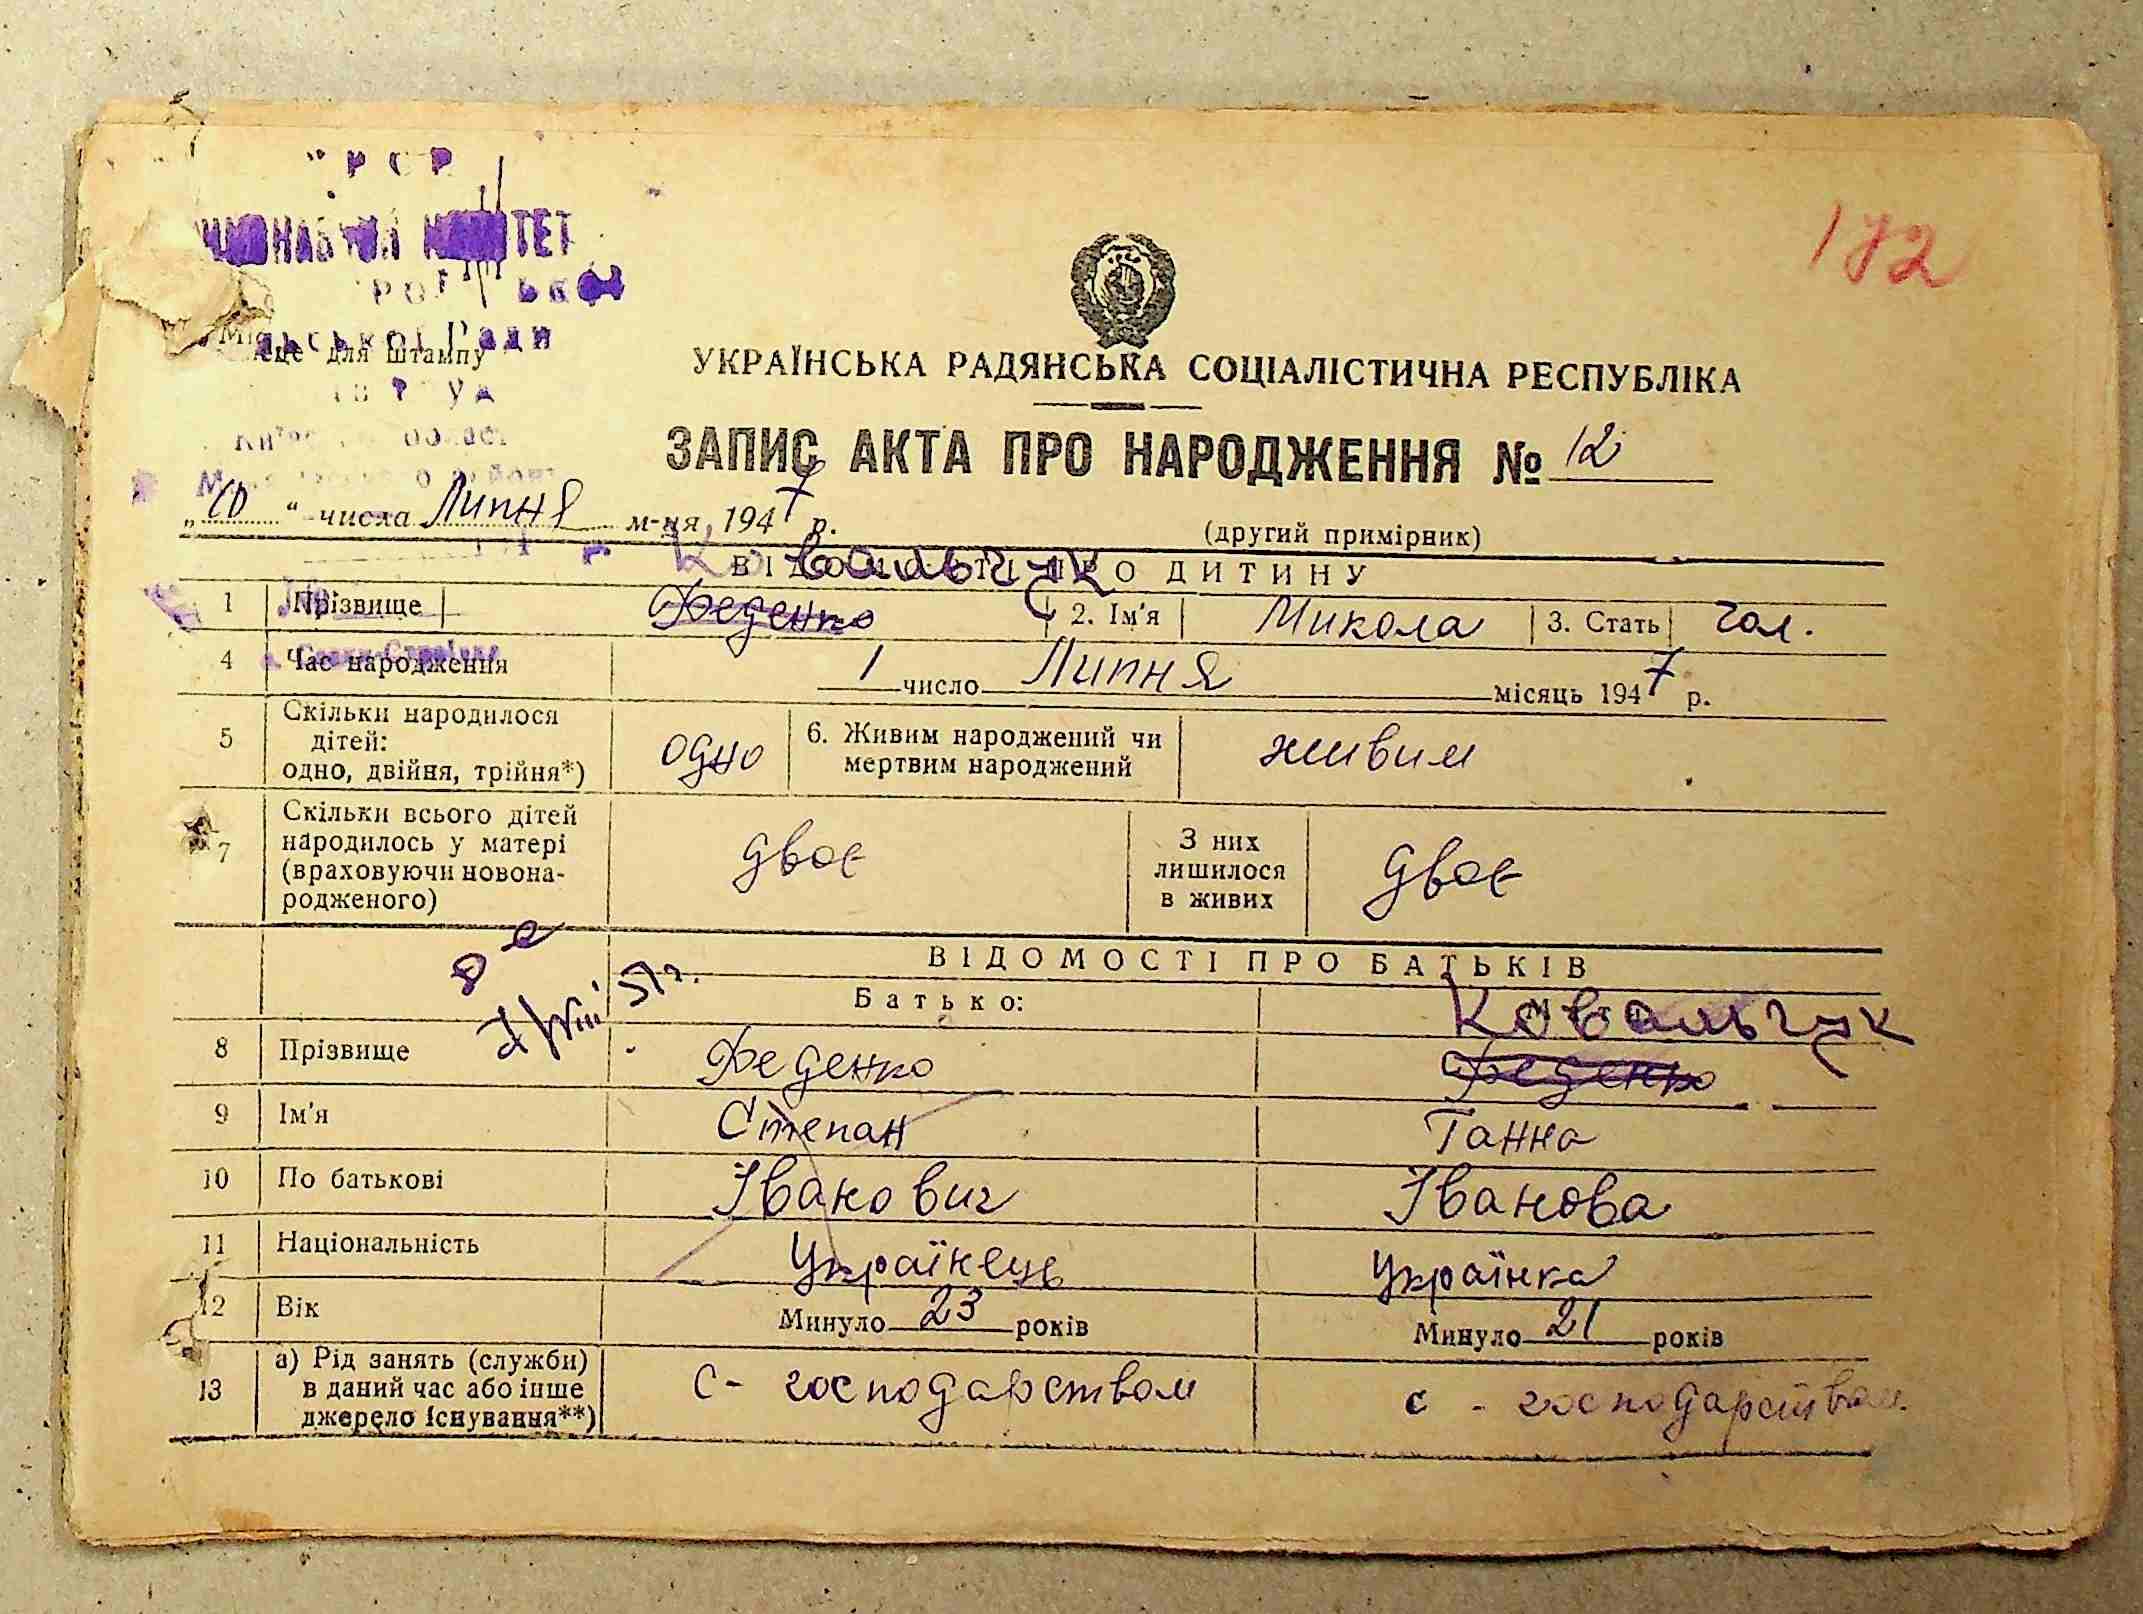 172
КОМІТЕТ
Ради
Місце для штампу
УКРАЇНСЬКА РАДЯНСЬКА СОЦІАЛІСТИЧНА РЕСПУБЛІКА
ЗАПИС АКТА ПРО НАРОДЖЕННЯ № 12
„10“ числа Липня м-ця, 1947 р. (другий примірник)
Ковальчук
ВІДОМОСТІ ПРО ДИТИНУ
1 Прізвище Феденко 2. Ім'я Микола 3. Стать чол.
4 Час народження 1 число Липня місяць 1947 р.
5 Скільки народилося дітей: одно, двійня, трійня*) одно 6. Живим народжений чи мертвим народжений живим
7 Скільки всього дітей народилось у матері (враховуючи новонародженого) двоє З них лишилося в живих двоє
ВІДОМОСТІ ПРО БАТЬКІВ
Батько: Мати
Ковальчук
8 Прізвище Феденко Феденко
9 Ім'я Степан Ганна
10 По батькові Іванович Іванова
11 Національність Українець Українка
12 Вік Минуло 23 років Минуло 21 років
13 а) Рід занять (служби) в даний час або інше джерело існування**) с - господарством с - господарством